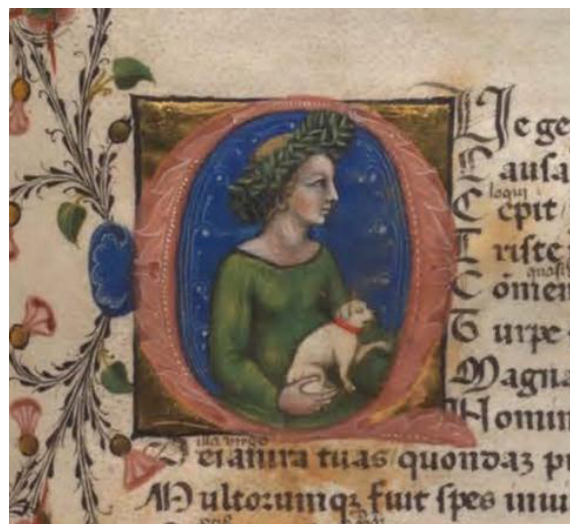 Q Ue ge
Causa
loqui
Cepit
Triste
quasi
Cōmem
Turpe
Magna
Nomin
illa virgo
Deianira tuas quondaz p
Multorumqz fuit spes inui